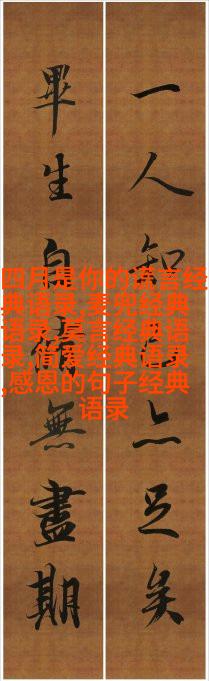 一人知己亦足矣
畢生自修無盡期
四月是你的谎言经
典语录,麦兜经典
语录,莫言经典语
录,简爱经典语录
,感恩的句子经典
语录